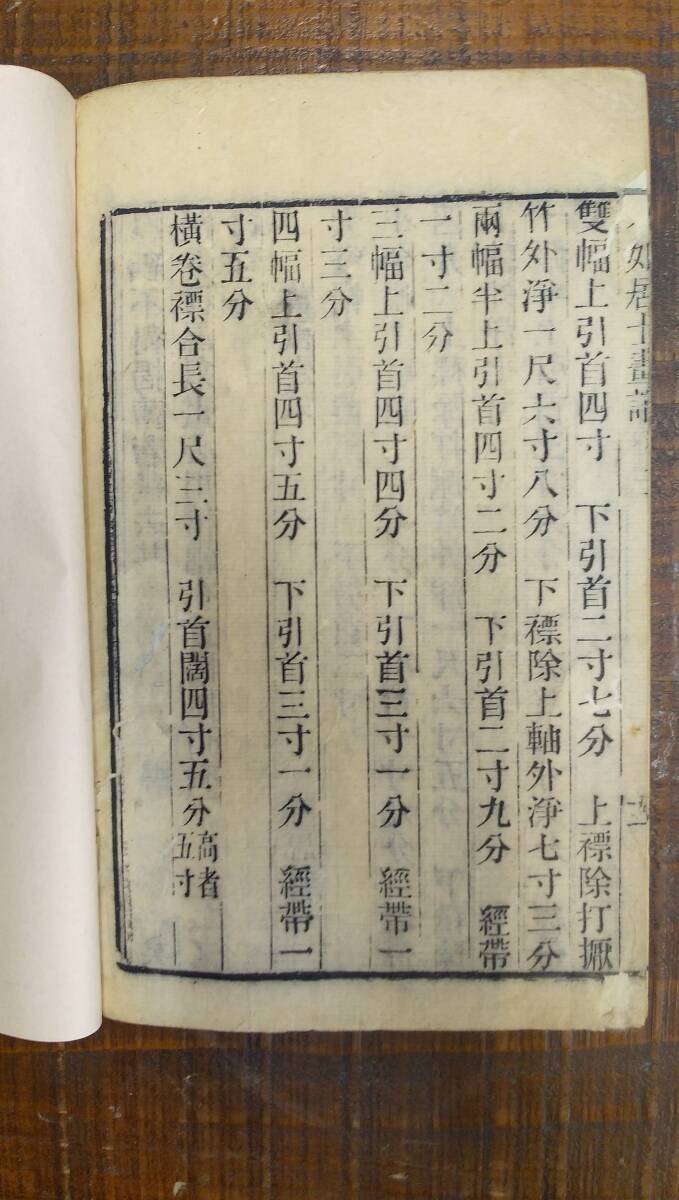 如居士畫記
雙幅上引首四寸　下引首二寸七分　上褾除打擫
竹外淨一尺六寸八分　下褾除上軸外淨七寸三分
兩幅半上引首四寸二分　下引首二寸九分　經帶
一寸二分
三幅上引首四寸四分　下引首三寸一分　經帶一
寸三分
四幅上引首四寸五分　下引首三寸一分　經帶一
寸五分
橫卷褾合長一尺三寸　引首闊四寸五分高者
五寸